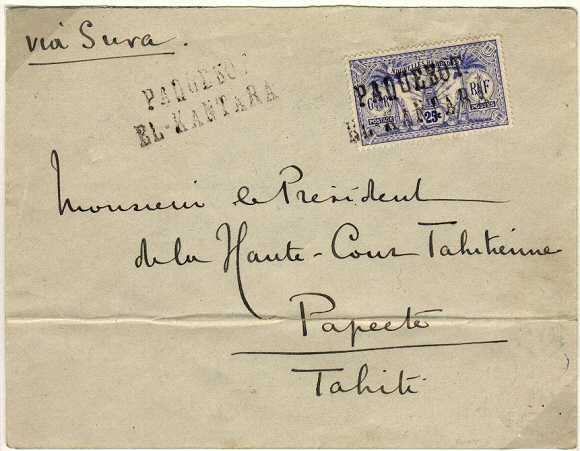 via Suva.
PAQUEBOT
EL-KANTARA
PAQUEBOT
EL-KANTARA
RF
25c
Monsieur le Président
de la Haute-Cour Tahitienne
Papeete
Tahiti